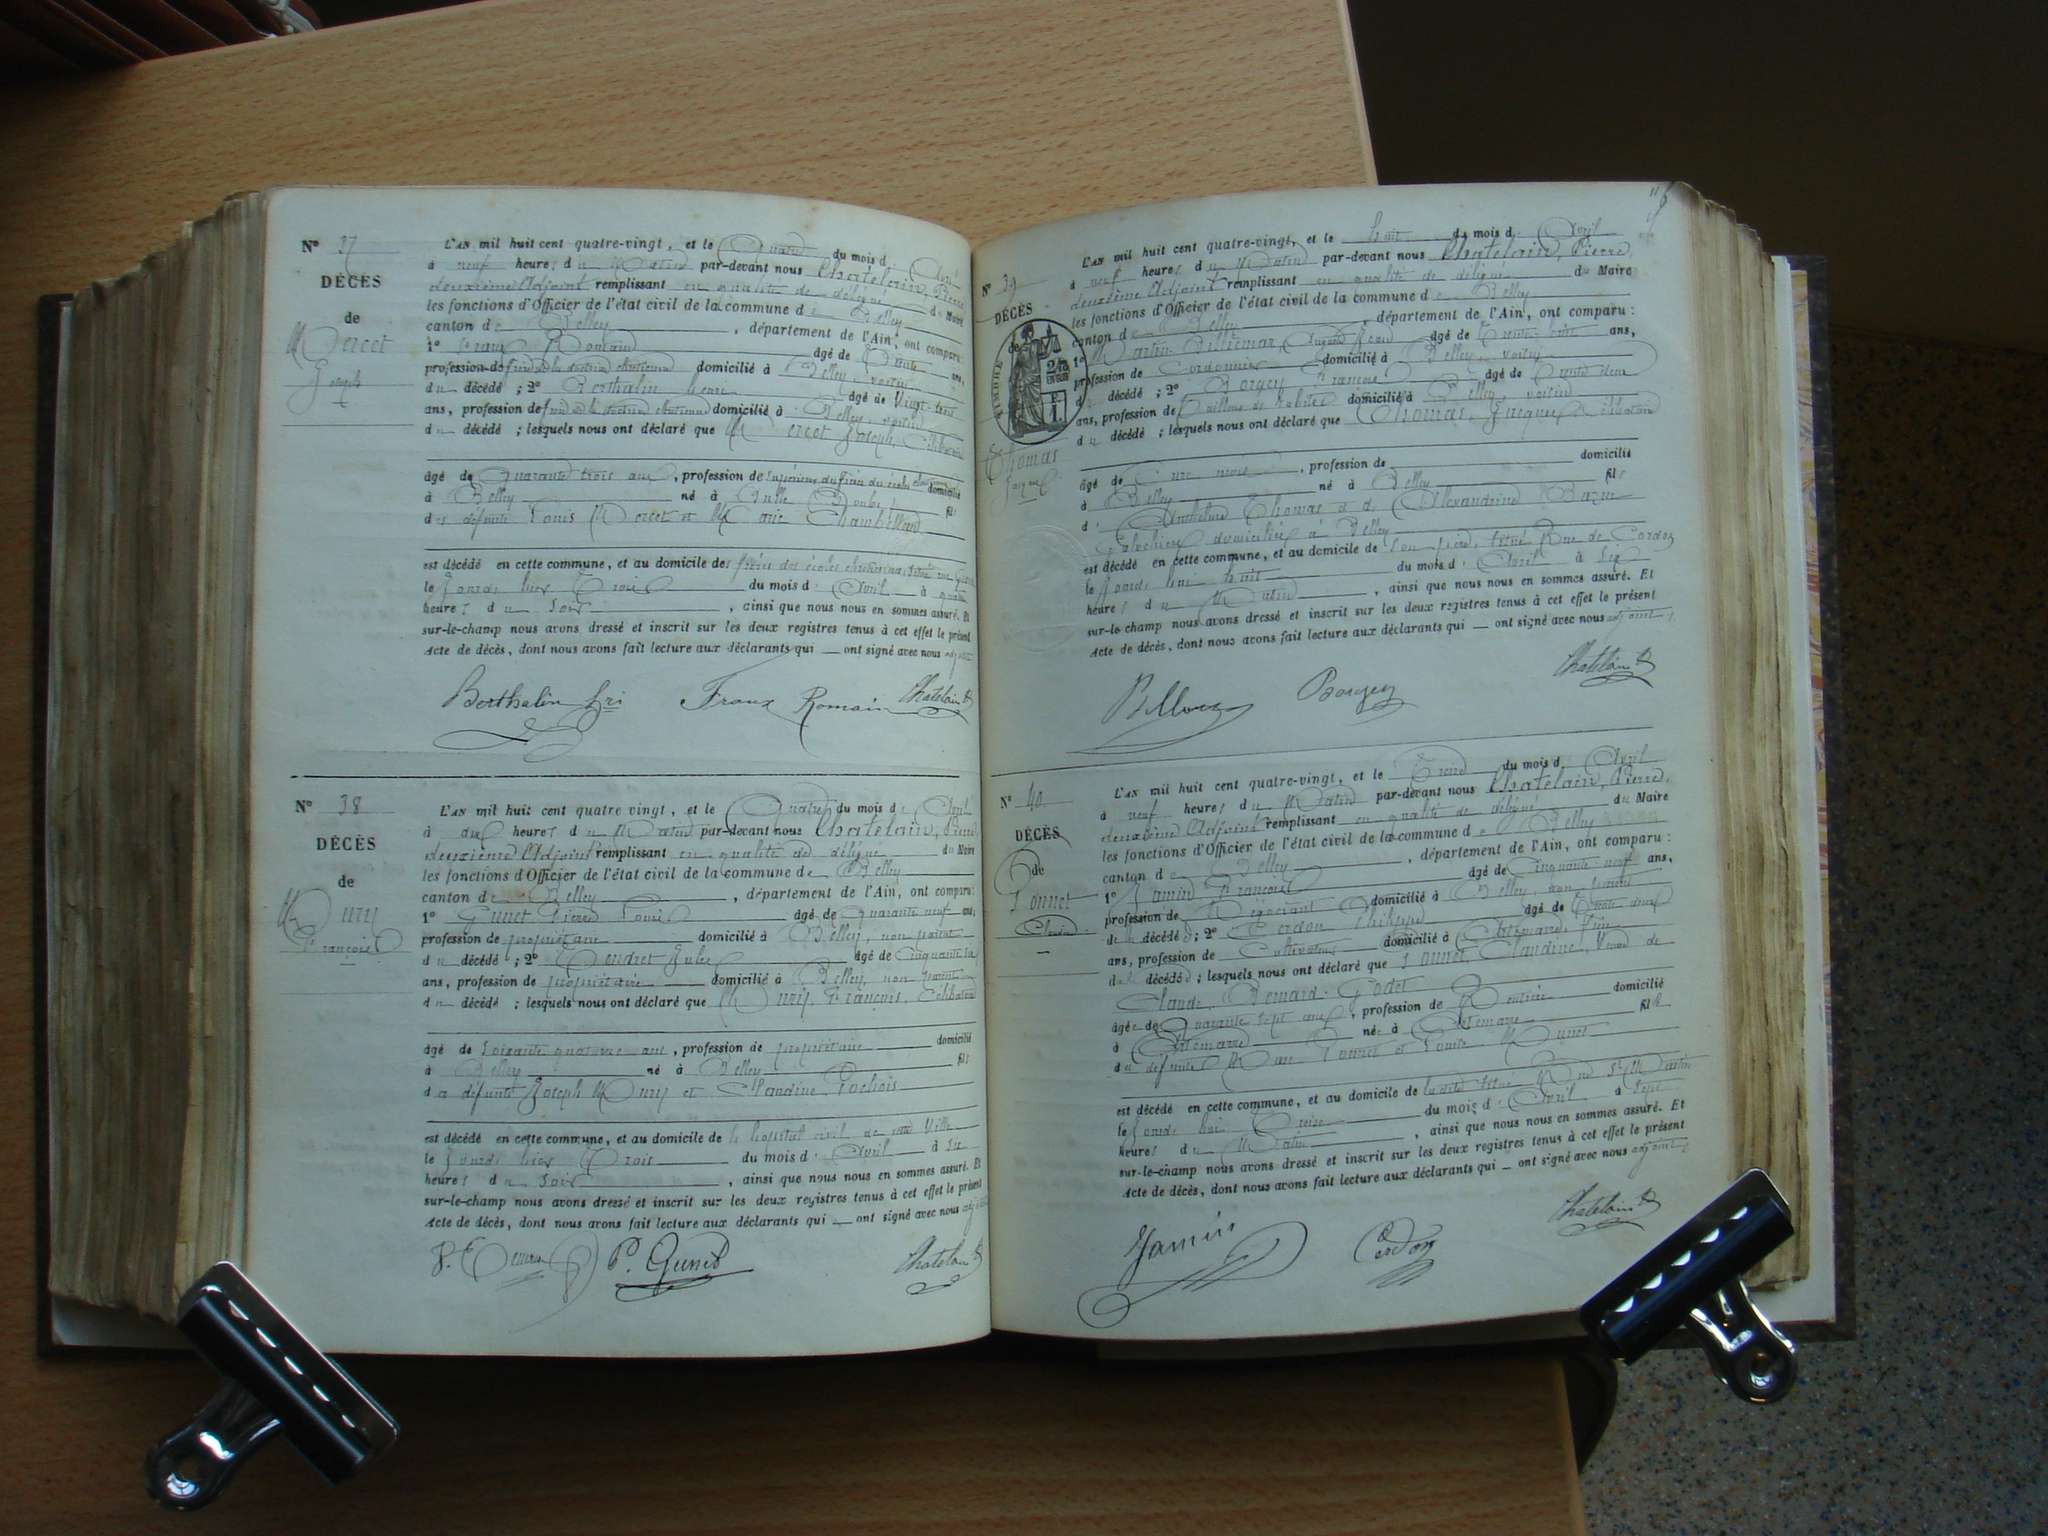 N° 37
DÉCÈS
de
Mercet
Joseph
L'AN mil huit cent quatre-vingt, et le Quatre du mois d' Avril
à neuf heures du Matin par-devant nous Chatelain, Pierre
deuxième Adjoint remplissant en qualité de délégué du Maire
les fonctions d'Officier de l'état civil de la commune de Belley
canton de Belley, département de l'Ain, ont comparu:
1° Romain âgé de Trente ans,
profession de frère de la doctrine chrétienne domicilié à Belley, voisin
du décédé; 2° Berthalin henri âgé de Vingt-
ans, profession de frère de la doctrine chrétienne domicilié à Belley, voisin
du décédé; lesquels nous ont déclaré que Mercet Joseph, Célibataire
âgé de Quarante trois ans, profession de Supérieur des Frères des écoles chrétiennes domicilié
à Belley né à Doubs fils
des défunts Louis Mercet et Marie
est décédé en cette commune, et au domicile des frères des écoles chrétiennes, situé rue
le Jour d' hier Trois du mois d' Avril à
heures du Soir, ainsi que nous nous en sommes assuré. Et
sur-le-champ nous avons dressé et inscrit sur les deux registres tenus à cet effet le présent
Acte de décès, dont nous avons fait lecture aux déclarants qui — ont signé avec nous adjoint
Berthalin hri Franx Romain Chatelain
N° 38
DÉCÈS
de
Mury
François
L'AN mil huit cent quatre vingt, et le Quatre du mois d' Avril
à dix heures du Matin par-devant nous Chatelain, Pierre,
deuxième Adjoint remplissant en qualité de délégué du Maire
les fonctions d'Officier de l'état civil de la commune de Belley
canton de Belley, département de l'Ain, ont comparu:
1° Gunet Pierre Louis âgé de quarante neuf ans,
profession de propriétaire domicilié à Belley, non parent
du décédé; 2° Jules âgé de Cinquante
ans, profession de propriétaire domicilié à Belley, non parent
du décédé; lesquels nous ont déclaré que Mury, François, Célibataire
âgé de Soixante quatorze ans, profession de propriétaire domicilié
à Belley né à Belley fils
de défunts Joseph Mury et Claudine Pochois
est décédé en cette commune, et au domicile de l'hôpital civil de cette Ville
le Jour d' hier Trois du mois d' Avril à Six
heures du Soir, ainsi que nous nous en sommes assuré. Et
sur-le-champ nous avons dressé et inscrit sur les deux registres tenus à cet effet le présent
Acte de décès, dont nous avons fait lecture aux déclarants qui — ont signé avec nous adjoint
P. Gunet Chatelain
N° 39
DÉCÈS
de
TIMBRE
Thomas
Jacques
L'AN mil huit cent quatre-vingt, et le huit du mois d' Avril
à neuf heures du Matin par-devant nous Chatelain, Pierre,
deuxième Adjoint remplissant en qualité de délégué du Maire
les fonctions d'Officier de l'état civil de la commune de Belley
canton de Belley, département de l'Ain, ont comparu:
1° Martin Billiemaz, âgé de Trente-huit ans,
profession de Cordonnier domicilié à Belley, voisin
du décédé; 2° Borgey François âgé de Trente deux
ans, profession de Tailleur de habits domicilié à Belley, voisin
du décédé; lesquels nous ont déclaré que Thomas, Jacques, Célibataire
âgé de Onze mois, profession de domicilié
à Belley né à Belley fils
d' Anthelme Thomas et d' Alexandrine
domiciliés à Belley
est décédé en cette commune, et au domicile de Son père, situé Rue de Cordon
le Jour d' hui huit du mois d' Avril à Six
heures du Matin, ainsi que nous nous en sommes assuré. Et
sur-le-champ nous avons dressé et inscrit sur les deux registres tenus à cet effet le présent
Acte de décès, dont nous avons fait lecture aux déclarants qui — ont signé avec nous adjoint.
Borgey Chatelain
N° 40
DÉCÈS
de
Ponnet
Claudine
L'AN mil huit cent quatre-vingt, et le Treize du mois d' Avril
à neuf heures du Matin par-devant nous Chatelain, Pierre,
deuxième Adjoint remplissant en qualité de délégué du Maire
les fonctions d'Officier de l'état civil de la commune de Belley
canton de Belley, département de l'Ain, ont comparu:
1° Jamin François âgé de Cinquante-neuf ans,
profession de Négociant domicilié à Belley, non parent
de la décédée; 2° Cerdon Philippe âgé de Trente deux
ans, profession de Cultivateur domicilié à Artemare,
de la décédée; lesquels nous ont déclaré que Ponnet Claudine, Veuve de
Claude Bernard Godet
âgée de Quarante sept ans, profession de Rentière domicilié
à Artemare née à Artemare fille
de défunts Marc Ponnet et Louise
est décédé en cette commune, et au domicile de
le Jour d' hui Treize du mois d' Avril à Sept
heures du Matin, ainsi que nous nous en sommes assuré. Et
sur-le-champ nous avons dressé et inscrit sur les deux registres tenus à cet effet le présent
Acte de décès, dont nous avons fait lecture aux déclarants qui — ont signé avec nous adjoint.
Jamin Cerdon Chatelain